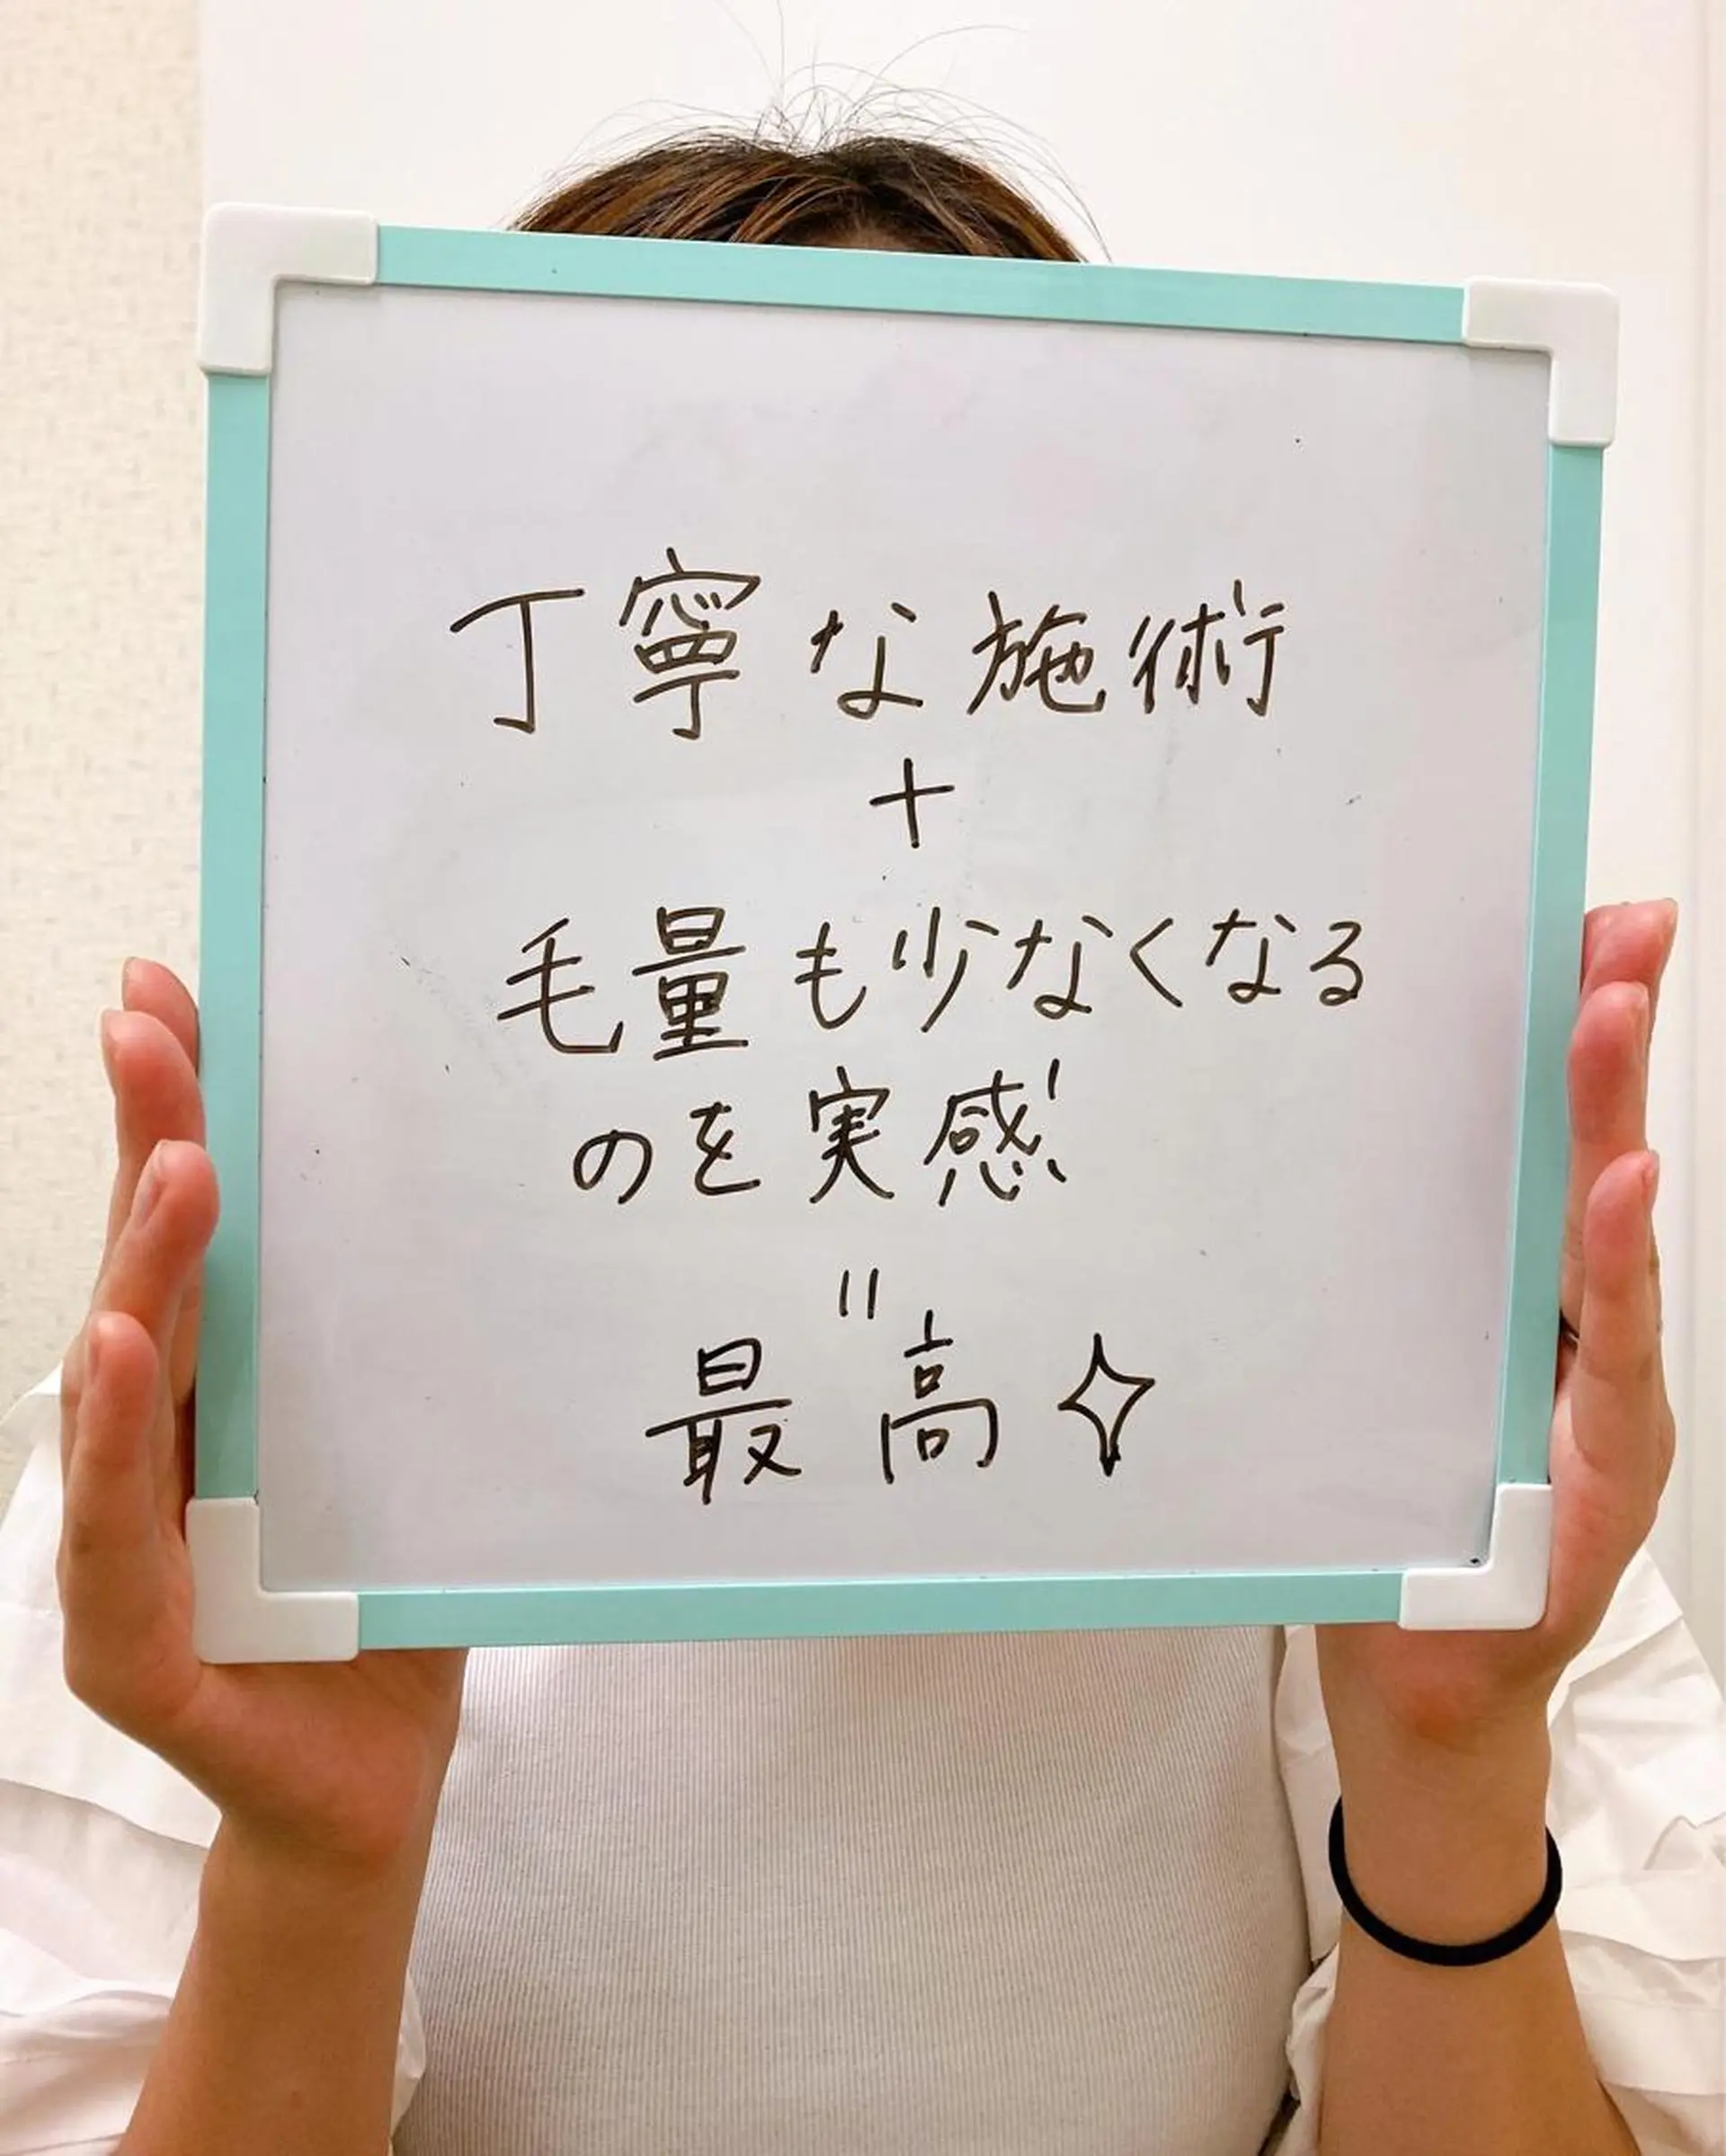 丁寧な施術
+
毛量も少なくなる
のを実感
=
最高✧